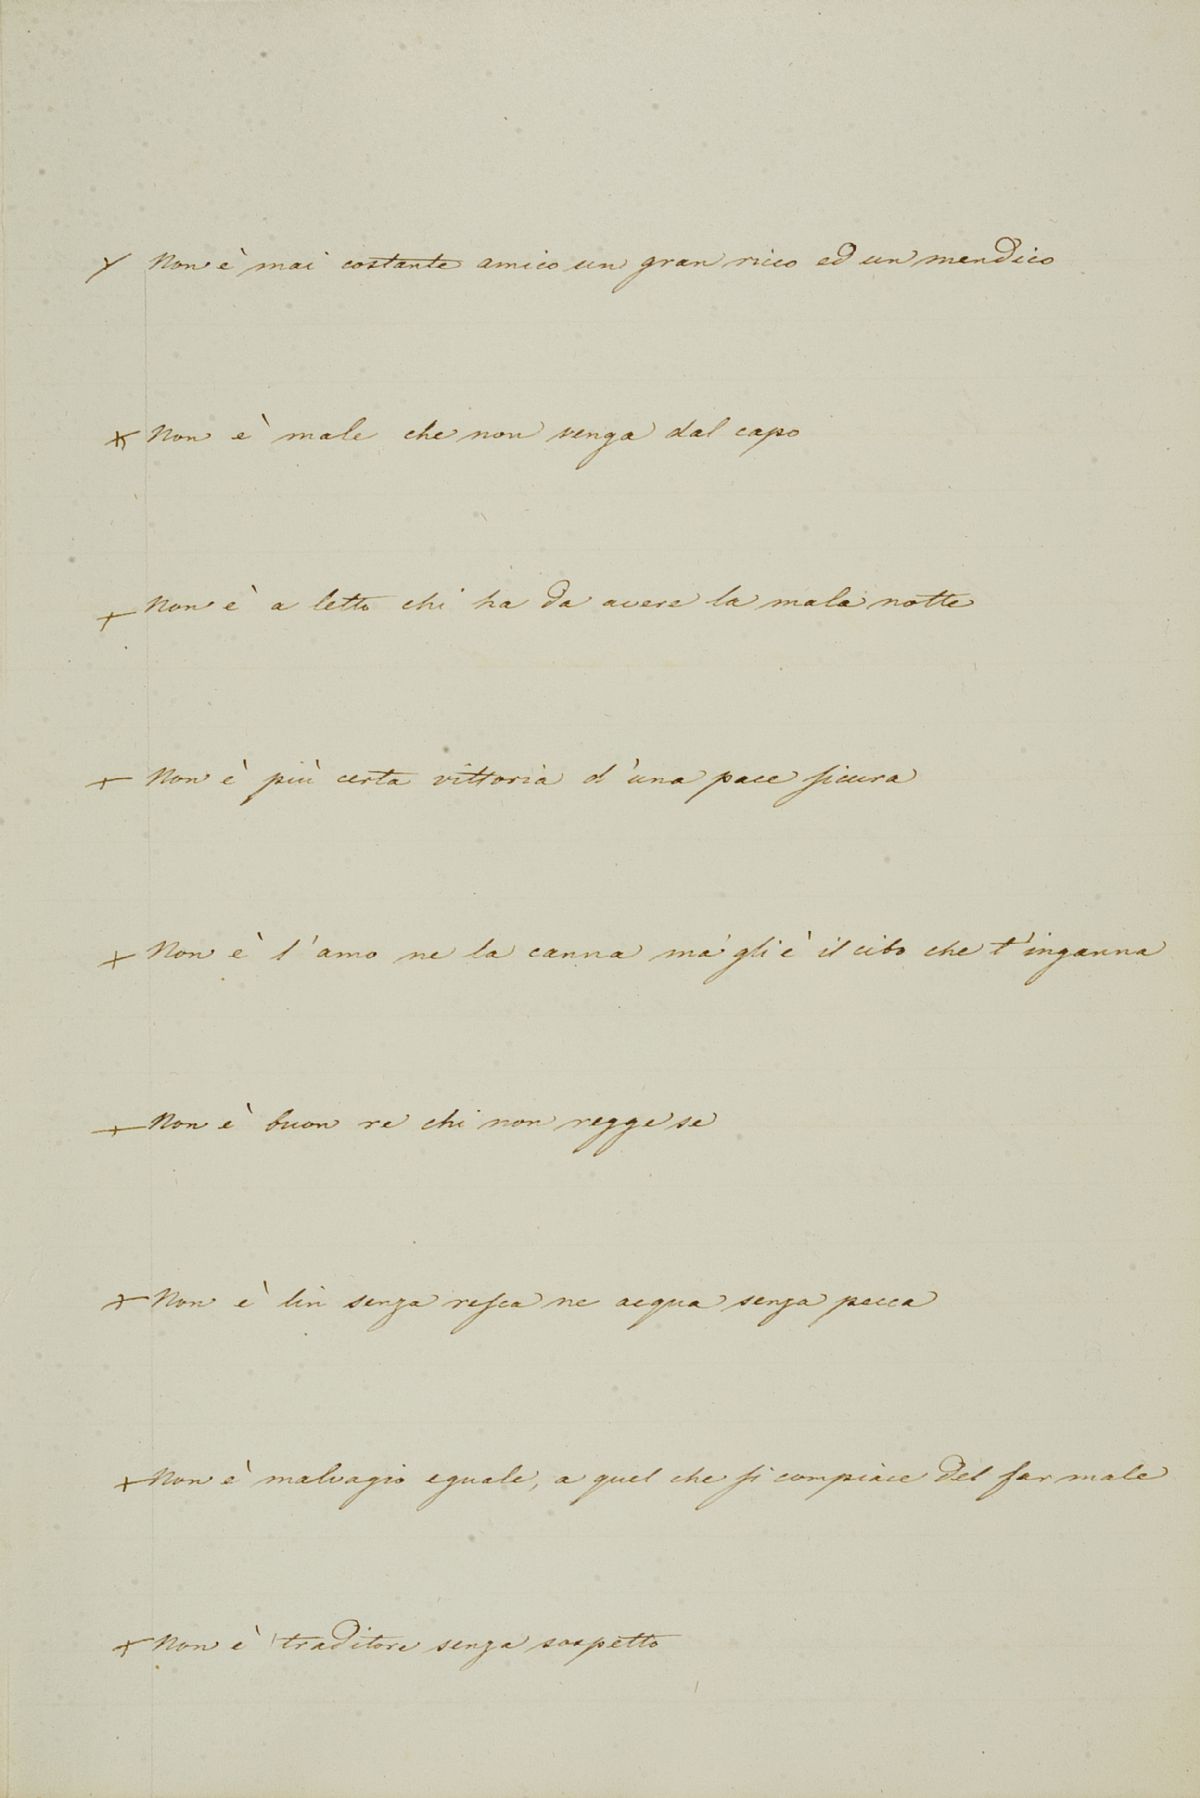 Non è mai costante amico un gran ricco ed un mendico
Non è male che non venga dal capo
Non è a letto chi ha da avere la mala notte
Non è più certa vittoria d'una pace sicura
Non è l'amo ne la canna ma gli è il cibo che t'inganna
Non è buon re chi non regge se
Non è lin senza resca ne acqua senza pecca
Non è malvagio eguale, a quel che si compiace del far male
Non è traditore senza sospetto